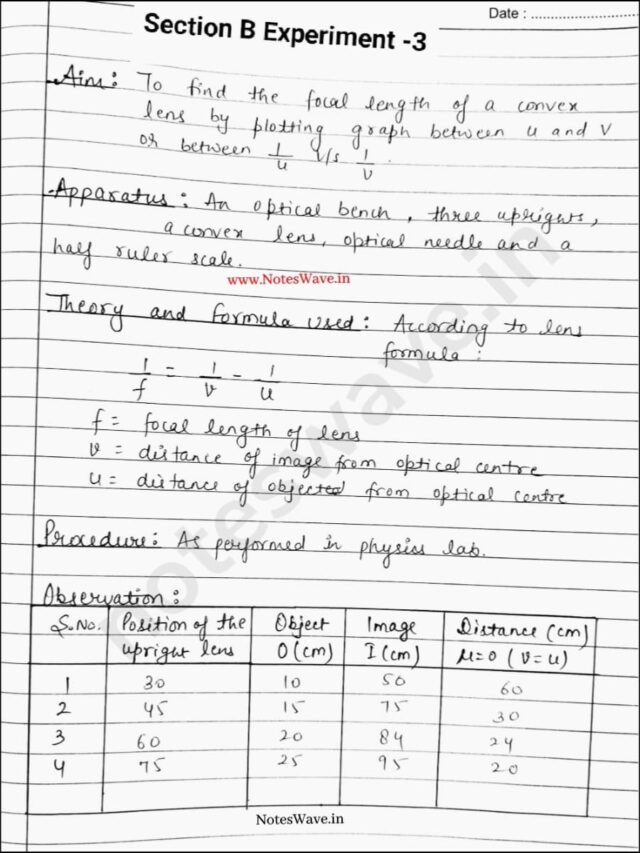 Date : ..............................
Section B Experiment -3
Aim: To find the focal length of a convex
lens by plotting graph between u and v
or between 1/u v/s 1/v.
Apparatus: An optical bench, three uprights,
a convex lens, optical needle and a
half ruler scale.
www.NotesWave.in
Theory and formula used: According to lens
formula:
1/f = 1/v - 1/u
f = focal length of lens
v = distance of image from optical centre
u = distance of object from optical centre
Procedure: As performed in physics lab.
noteswave.in
Observation:
S.No. Position of the upright lens Object O(cm) Image I(cm) Distance (cm) μ=0 (v=u)
1 30 10 50 60
2 45 15 75 30
3 60 20 84 24
4 75 25 95 20
NotesWave.in